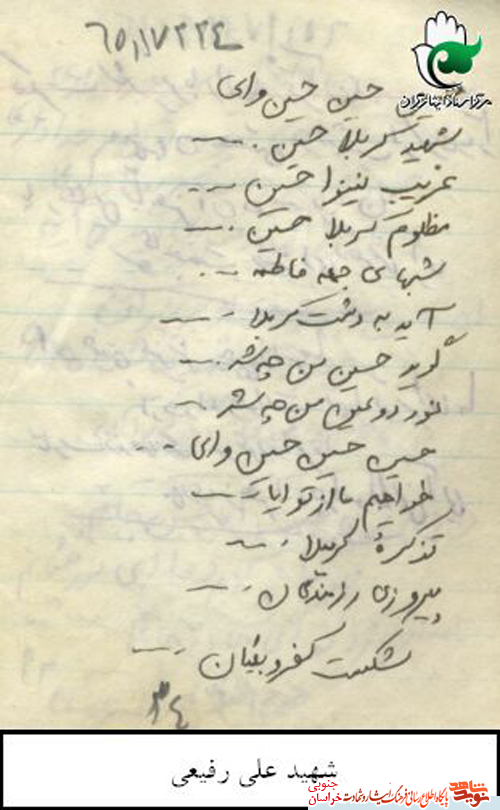 ۶۵/۱/۷۲۲۴
مرکز اسناد ایثارگران
حسین حسین وای
شهید کربلا حسین . ---
غریب نینوا حسین ---
مظلوم کربلا حسین . ---
شبهای جمعه فاطمه ---
آید به دشت کربلا ---
گوید حسین من چه شد ---
نور دو عین من چه شد ---
حسین حسین حسین وای ---
خواهیم ما از تو ---
تذکرهٔ کربلا . --
پیروزی رزمندگان ---
شکست کفر و بغیان ---
۳۴
شهید علی رفیعی
پایگاه اطلاع رسانی فرهنگ ایثار و شهادت خراسان جنوبی